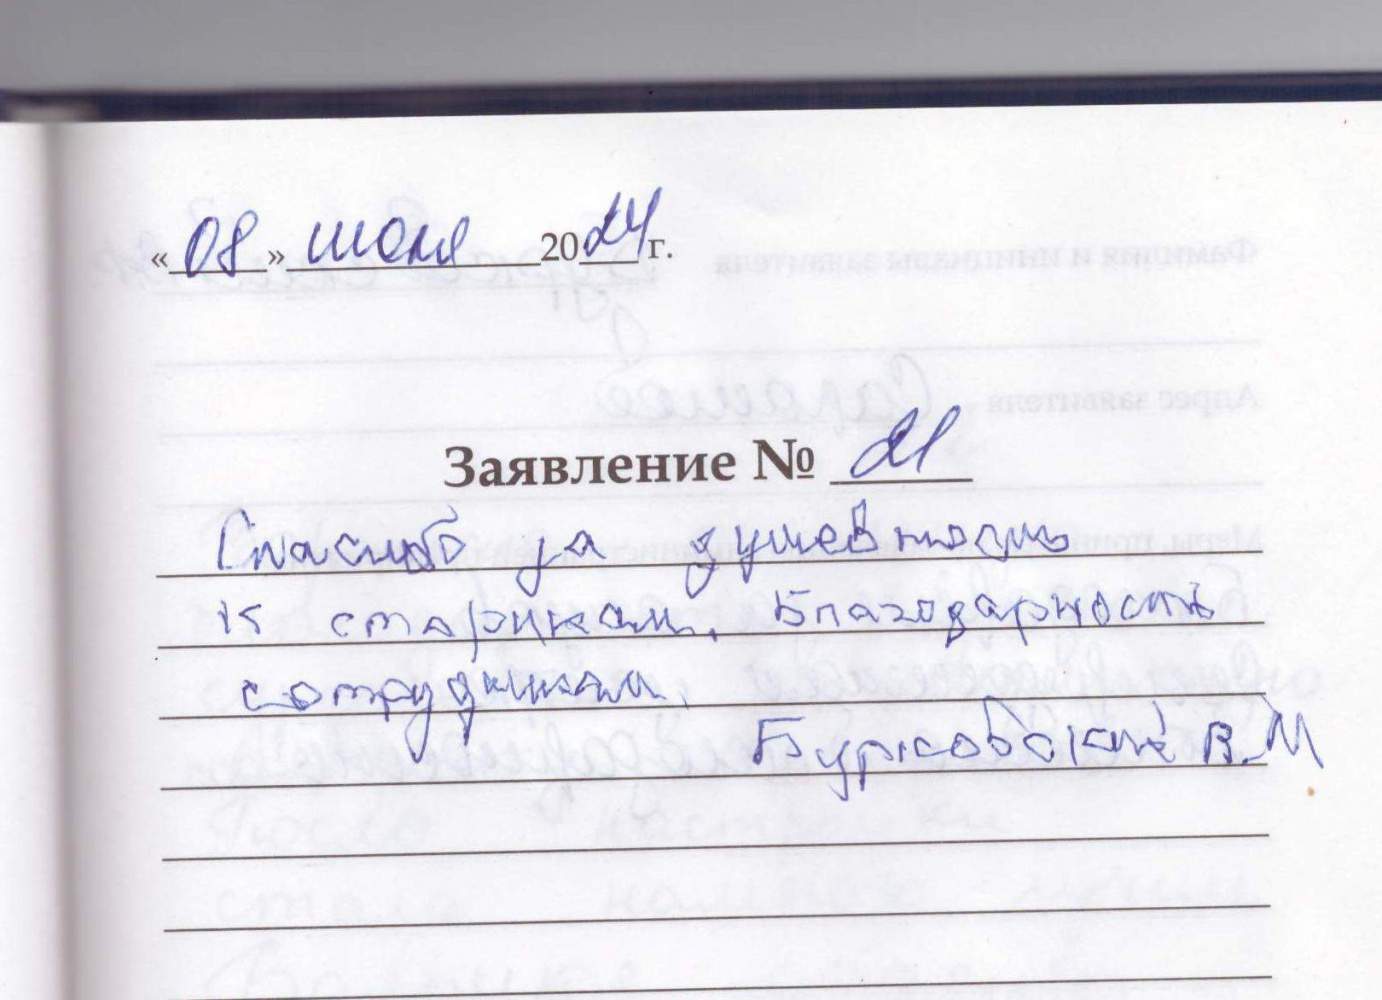 «08» июля 2024 г.
Заявление № 21
Спасибо за душевность
к старикам. Благодарность
сотрудникам.
Бурковский В.М